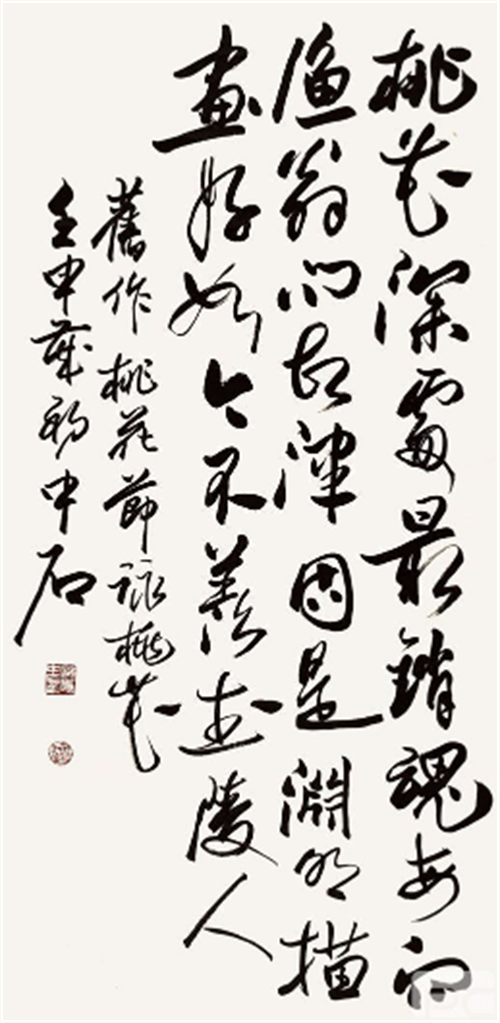 桃花深處最銷魂每向
漁翁问故津因是淵明描
畫好如今不羡武陵人
舊作桃花節詠桃花
壬申歲初中石